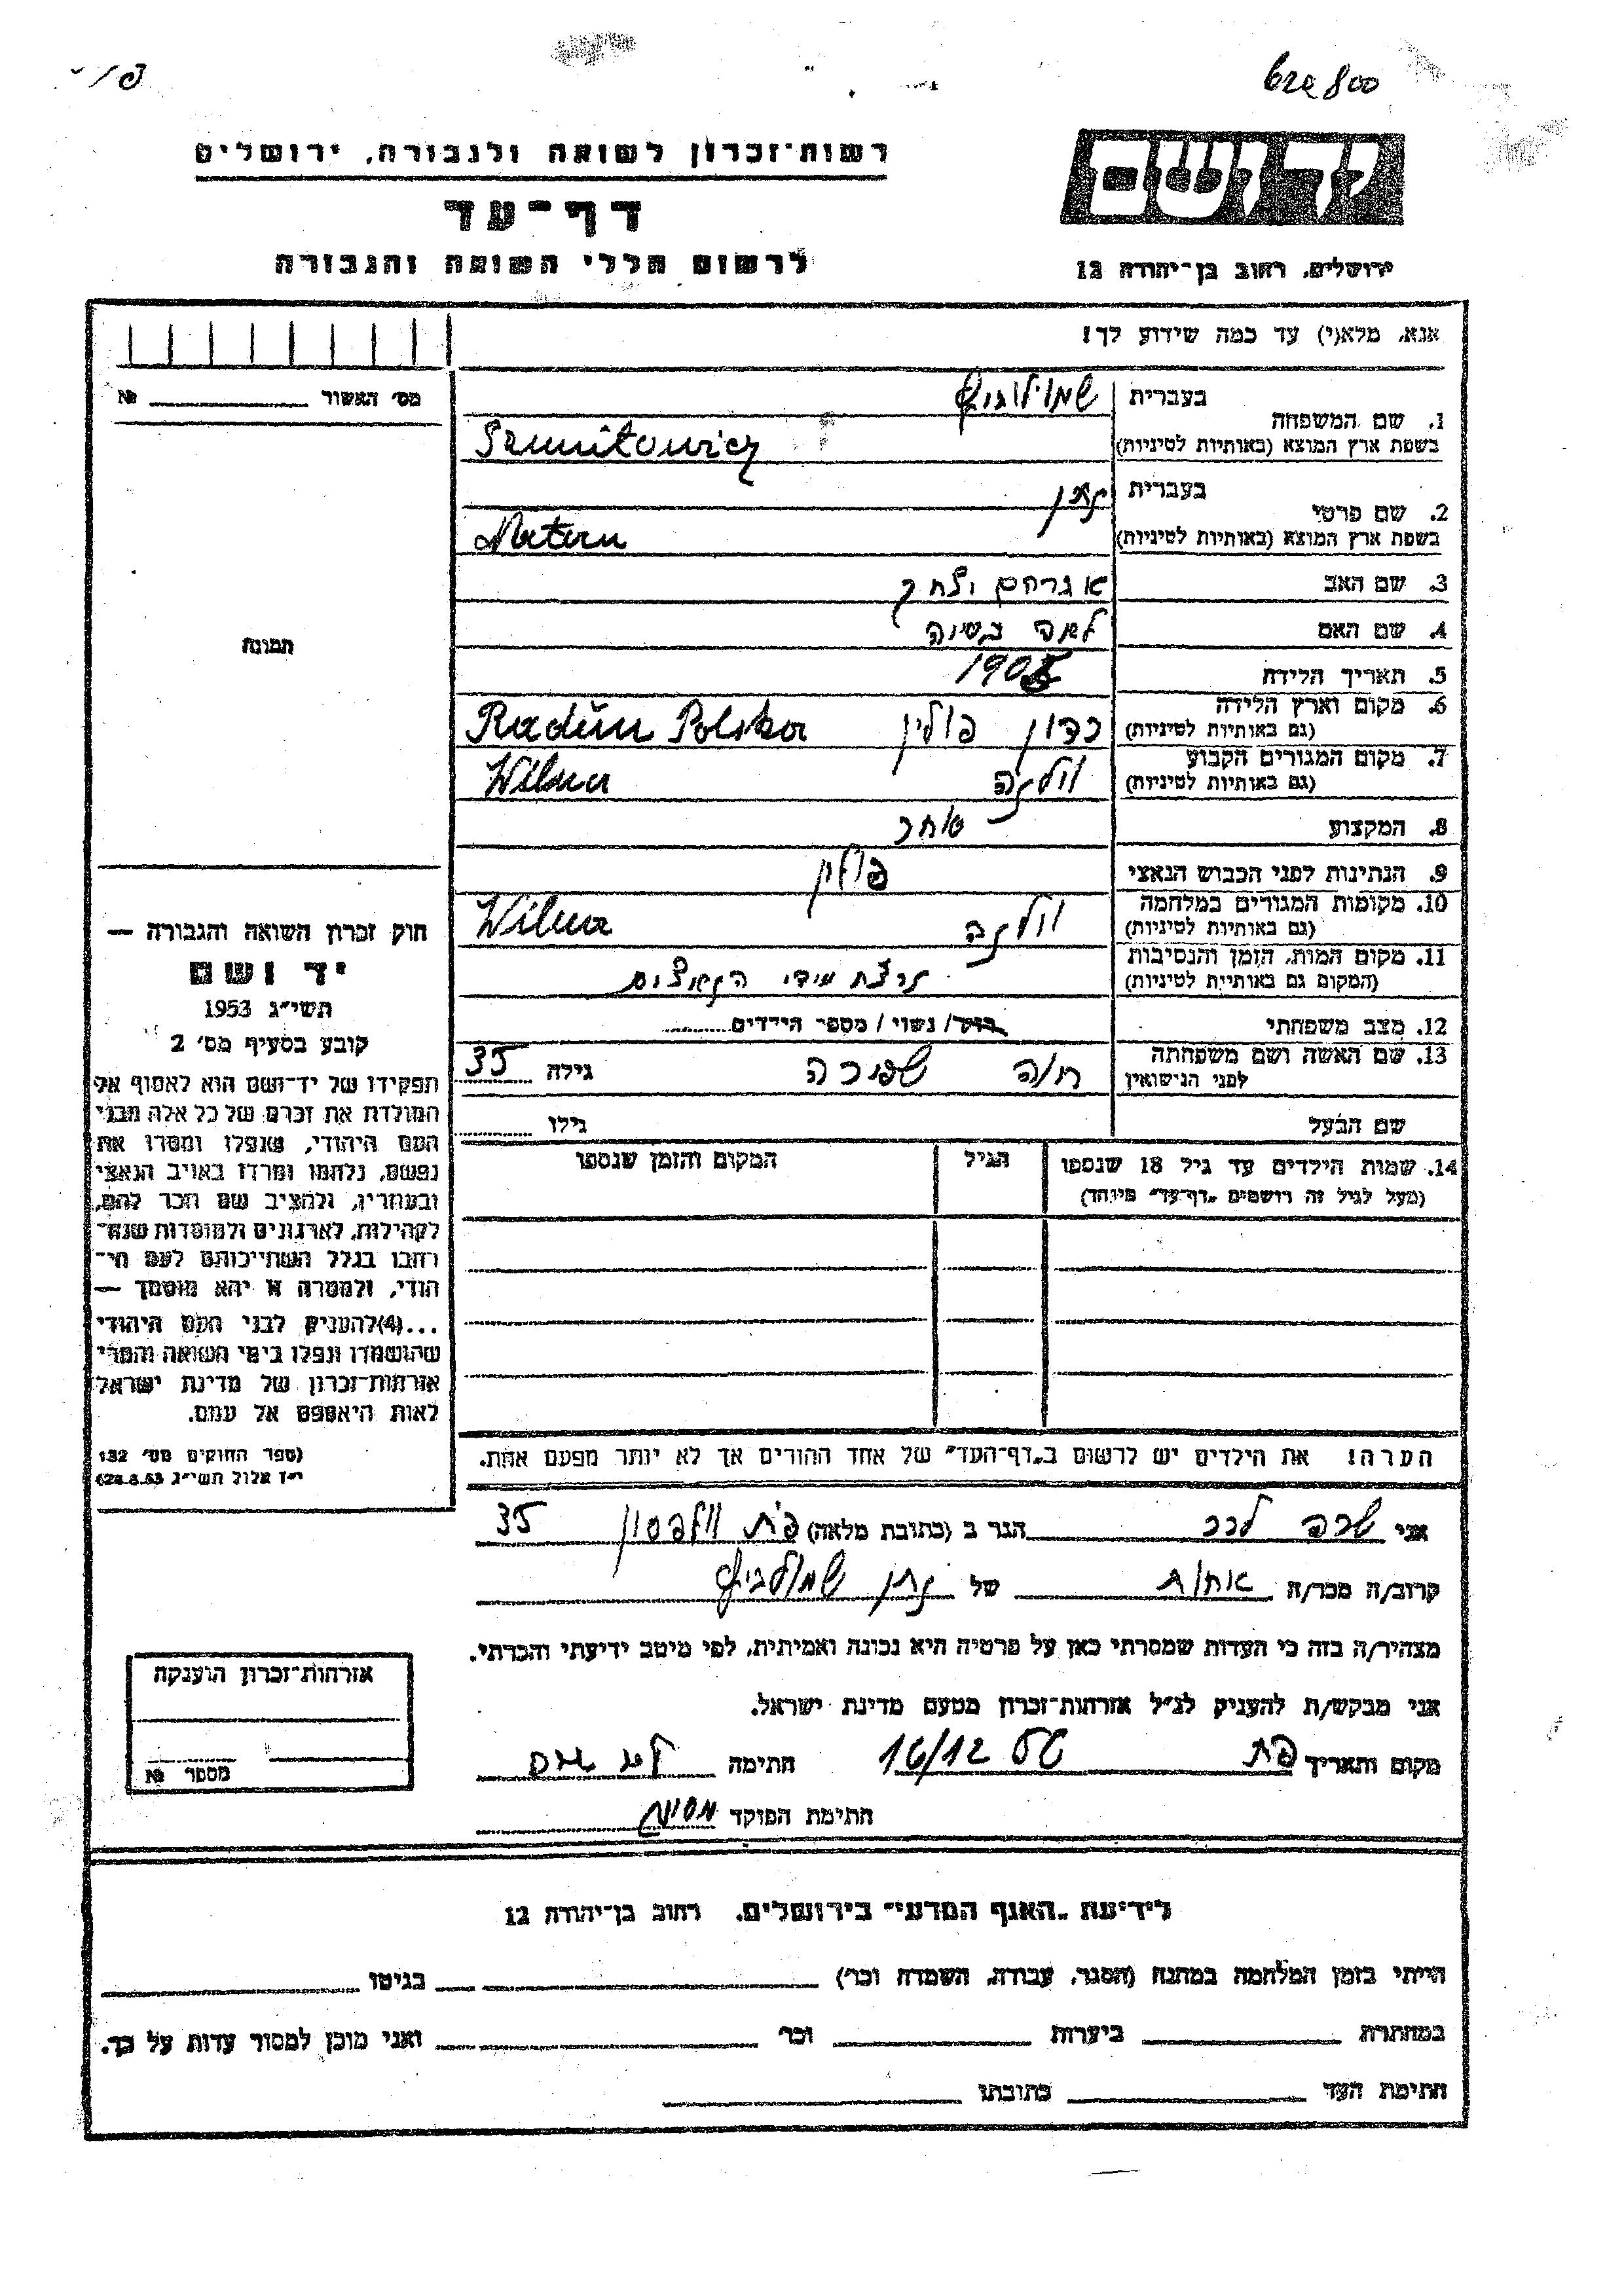 רשות־זכרון לשואה ולגבורה, ירושלים
דף־עד
לרשום חללי השואה והגבורה
יד ושם
ירושלים, רחוב בן־יהודה 12
אנא, מלא(י) עד כמה שידוע לך!
מס׳ האשור № 
תמונה
1. שם המשפחה
בעברית שמוילוביץ
בשפת ארץ המוצא (באותיות לטיניות) Szmuilowicz
2. שם פרטי
בעברית נתן
בשפת ארץ המוצא (באותיות לטיניות) Natan
3. שם האב אברהם
4. שם האם לאה בסיה
5. תאריך הלידה
6. מקום וארץ הלידה רדון פולין Raduń Polska
(גם באותיות לטיניות)
7. מקום המגורים הקבוע וילנה Wilna
(גם באותיות לטיניות)
8. המקצוע סוחר
9. הנתינות לפני הכבוש הנאצי פולין
10. מקומות המגורים במלחמה וילנה Wilna
(גם באותיות לטיניות)
11. מקום המות, הזמן והנסיבות נרצח מידי הנאצים
(המקום גם באותיות לטיניות)
12. מצב משפחתי רווק / נשוי / מספר הילדים
13. שם האשה ושם משפחתה לפני הנישואין חיה שפירה גילה 35
שם הבעל גילו
14. שמות הילדים עד גיל 18 שנספו הגיל המקום והזמן שנספו
(מעל לגיל זה רושמים „דף־עד״ מיוחד)
חוק זכרון השואה והגבורה —
יד ושם
תשי״ג 1953
קובע בסעיף מס׳ 2
תפקידו של יד־ושם הוא לאסוף אל
המולדת את זכרם של כל אלה מבני
העם היהודי, שנפלו ומסרו את
נפשם, נלחמו ומרדו באויב הנאצי
ובעוזריו, ולהציב שם וזכר להם,
לקהילות, לארגונים ולמוסדות שנח־
רחבו בגלל השתייכותם לעם הי־
הודי, ולמטרה זו יהא מוסמך —
...(4) להעניק לבני העם היהודי
שהושמדו ונפלו בימי השואה והמרי
אזרחות־זכרון של מדינת ישראל
לאות היאספם אל עמם.
(ספר החוקים מס׳ 132
י״ז אלול תשי״ג 28.8.53)
הערה! את הילדים יש לרשום ב„דף־העד״ של אחד ההורים אך לא יותר מפעם אחת.
אני הגר ב (כתובת מלאה) פ״ת וולפסון 35
קרוב/ה מכר/ה אחות של נתן שמוילוביץ
מצהיר/ה בזה כי העדות שמסרתי כאן על פרטיה היא נכונה ואמיתית, לפי מיטב ידיעתי והכרתי.
אני מבקש/ת להעניק לנ״ל אזרחות־זכרון מטעם מדינת ישראל.
מקום ותאריך פ״ת 16/12 חתימה
חתימת הפוקד
אזרחות־זכרון הוענקה
מספר №
לידיעת „האגף המדעי״ בירושלים, רחוב בן־יהודה 12
הייתי בזמן המלחמה במחנה (הסגר, עבודה, השמדה וכו׳) בגיטו
במחתרת ביערות וכו׳ ואני מוכן למסור עדות על כך.
חתימת העד כתובתו